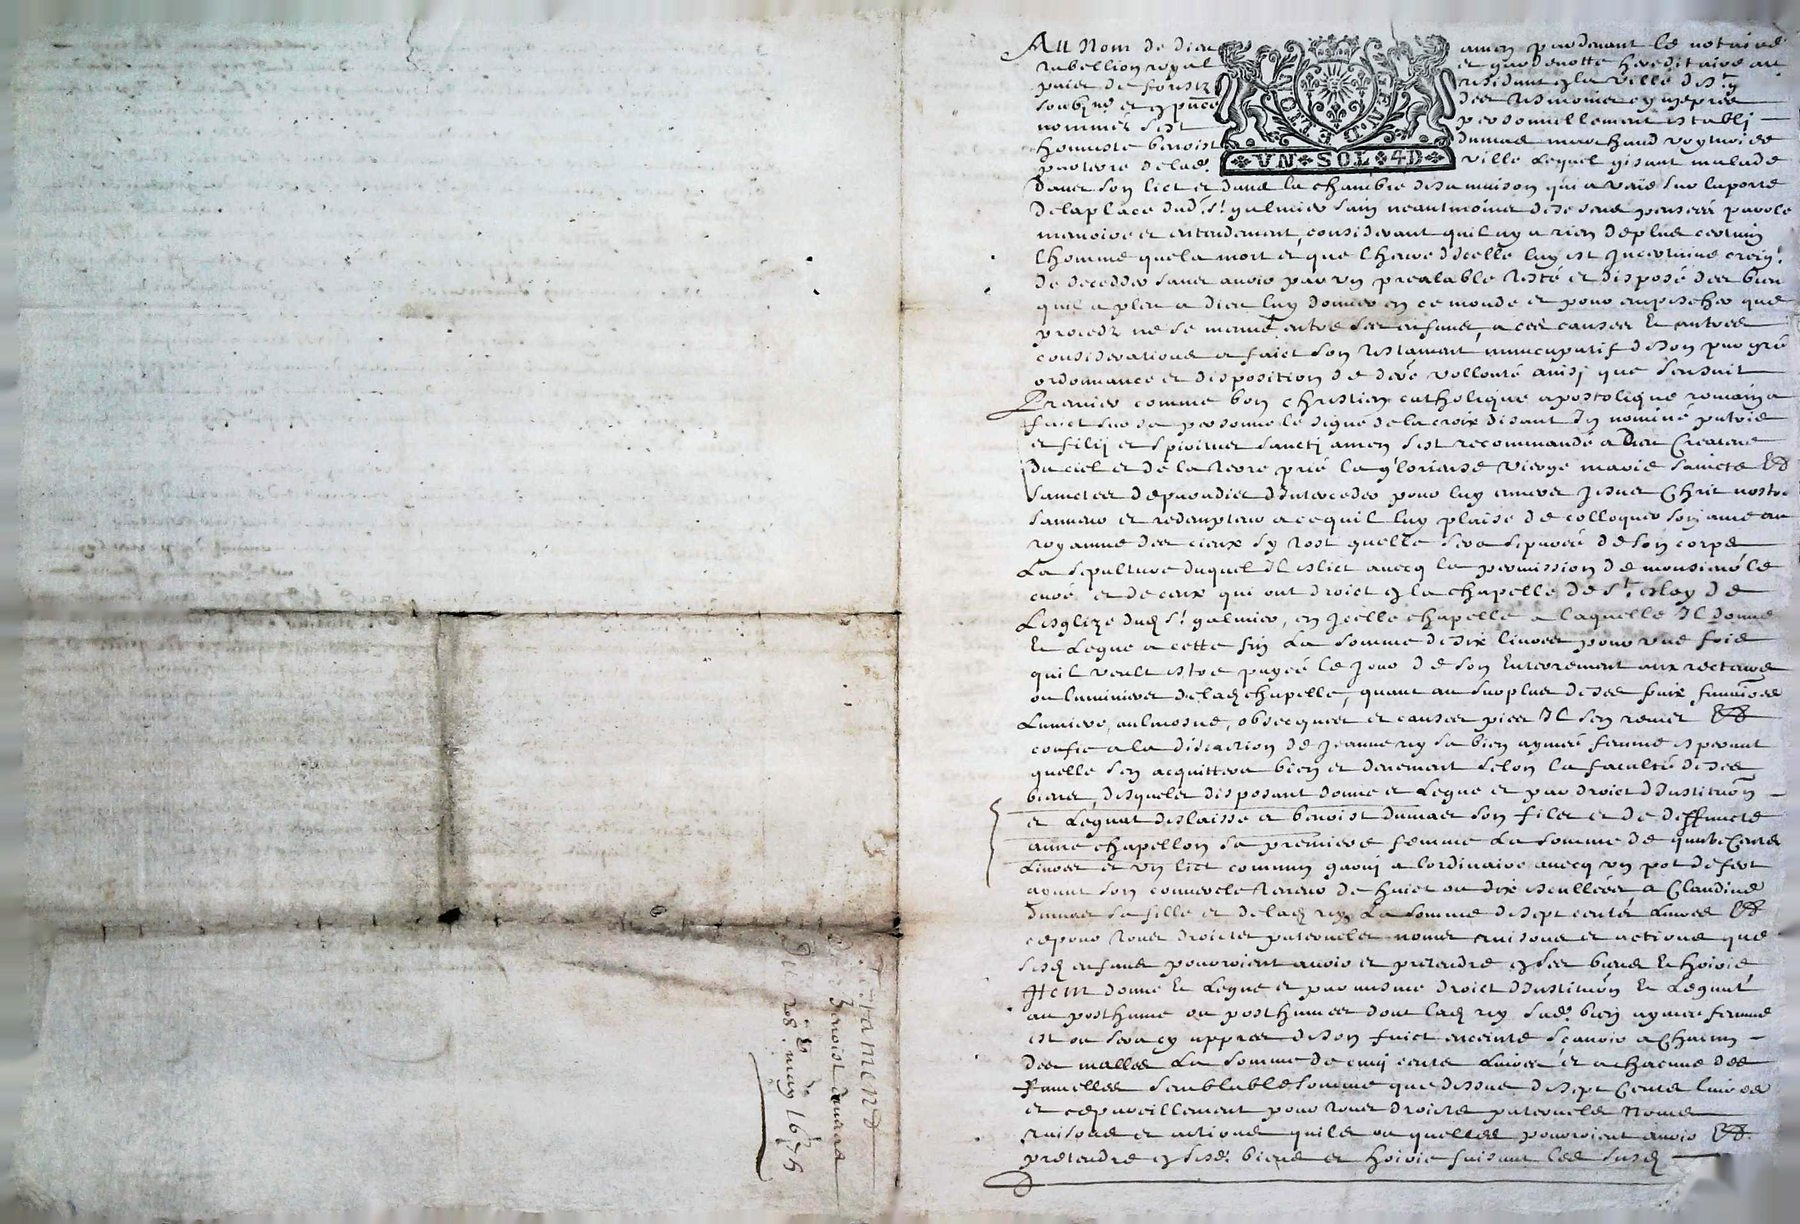 Au Nom de dieu amen pardevant le notaire
tabellion royal et gardenotte hereditaire au
paier de forestz residant en la ville de St
soubzné et en pnce des tesmoins cy apres
nommés s'est personnellement establj
honneste benoist dumas marchand
de lad. ville lequel gisant malade
LYONNOIS
UN · SOL · 4D
dans son lict et dans la chambre de sa maison qui a sur la porte
de la place dud St galmier sain neantmoins de ses sens pensees parole
memoire et entendement, considerant quil ny a rien de plus certain
lhomme que la mort et que lheure dicelle luy est Incertaine
de decedder sans avoir par un prealable testé et disposé des biens
quil a pleu a dieu luy donner en ce monde et pour empescher que
proces ne se meuve entre ses enfans, a ces causes et autres
considerations a faict son testament nuncupatif de son pur gré
ordonnance et disposition de volonté ainsj que sensuit
Premier comme bon christien catholique apostolique romain a
faict sur sa personne le signe de la croix disant In nomine patris
et filij et spiritus sanctj amen s'est recommandé a Dieu Createur
du ciel et de la terre prié la glorieuse vierge marie saincts et
sainctes de paradis dintercedder pour luy envers Jesus Christ nostre
sauveur et redempteur a ce quil luy plaise de colloquer son ame au
royaume des cieux sy tost quelle sera separée de son corps
La sepulture duquel Il eslict avecq la permission de monsieur le
curé et de ceux qui ont droict en la chapelle de St Eloy de
Lesglize dud St galmier, en Icelle chapelle a laquelle Il donne
et Legue a cette fin La somme de dix livres pour une fois
quil veult estre payée le Jour de son Enterrement aux recteurs
ou luminiers de lad chapelle, quant au surplus de ses fraix funeraires
Lumiere, aulmosne, obsecques et causes pies Il sen remet et
confie a la discretion de Jeanne rey sa bien aymée femme esperant
quelle sen acquittera bien et deuement selon la faculté de ses
biens, desquels disposant donne et Legue et par droict dInstitution
et Leguat deslaisse a benoist dumas son fils et de deffuncte
anne chapellon sa premiere femme La somme de quatre Cents
Livres et un lict commun garnj a lordinaire avecq un pot de fert
ayant son couvercle teneur de huict ou dix escullées a Claudine
dumas sa fille et de lad rey La somme de sept cents Livres et
ce pour tous droicts paternels noms raisons et actions que
sesd enfans pourroient avoir et pretendre en ses biens et hoirie
Item donne et Legue et par mesme droict dInstitution et Leguat
au posthume ou posthumes dont lad rey sad. bien aymée femme
est ou sera cy appres de son faict enceinte scavoir a Chacun
des masles La somme de cinq cents Livres et a chacune des
femelles semblable somme que dessus de sept Cents livres
et ce pareillement pour tous droicts paternels noms
raisons et actions quils ou quelles pourroient avoir et
pretendre en sesd. biens et hoirie faisant les susd
Testament
benoist dumas
Du 28 may 1675